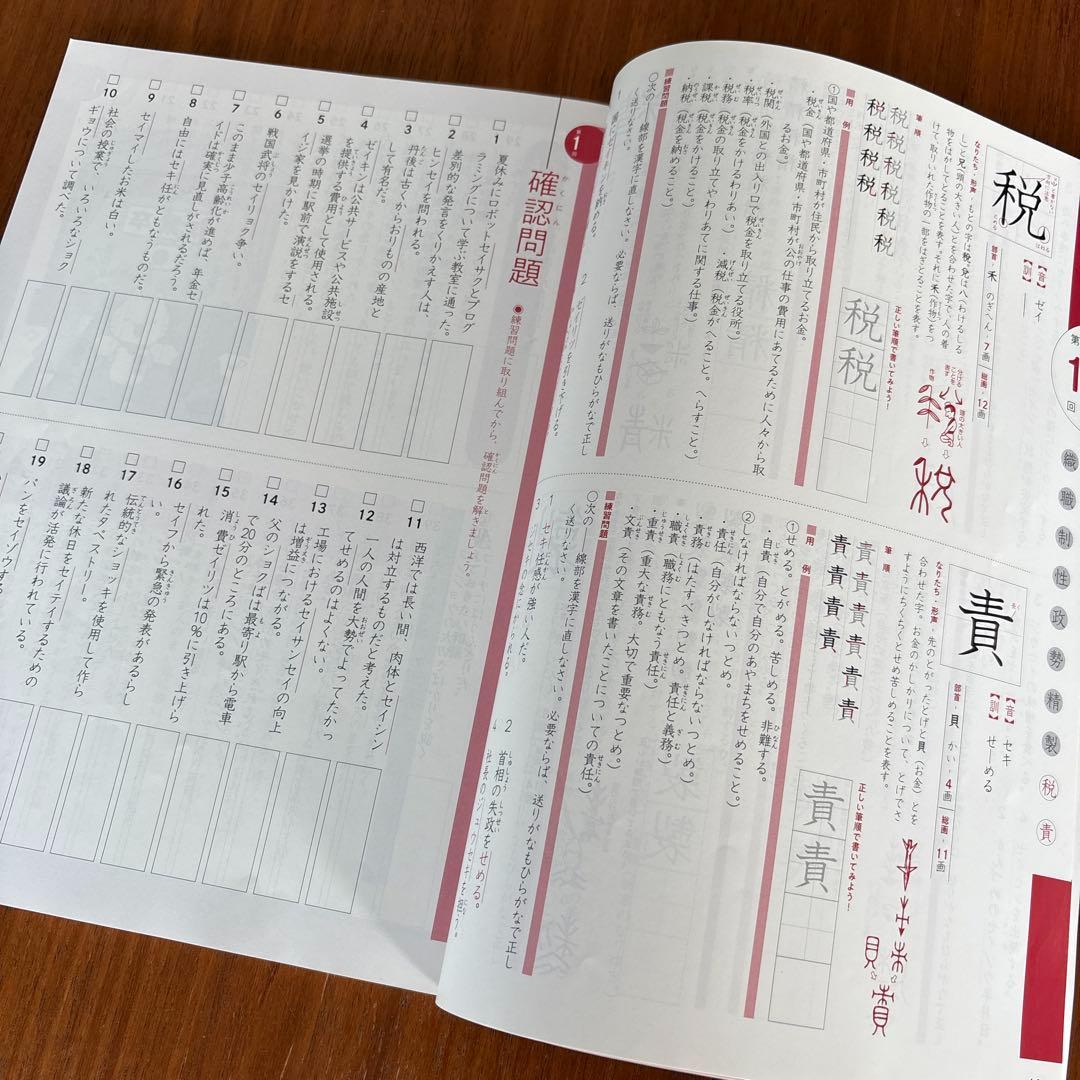 第
1
回
織
職
制
性
政
勢
精
製
税
責
税
はねる
とめる
【音】 ゼイ
【訓】 ―
部首・禾 のぎへん・7画 総画・12画
なりたち・形声
作物
頭の大きい人
分ける
ことを
表す
筆順
税税税税税税税税税税
正しい筆順で書いてみよう!
税税
■用例
①国や都道府県・市町村が住民から取り立てるお金。
・税金(国や都道府県・市町村が公の仕事の費用にあてるために人々から取
るお金。)
・税関(外国との出入り口で税金を取り立てる役所。)
・税率(税金をかけるわりあい。)
・減税(税金がへること。へらすこと。)
・税務(税金の取り立てやわりあてに関する仕事。)
・課税(税金をかけること。)
・納税(税金を納めること。)
■練習問題
○次の――線部を漢字に直しなさい。必要ならば、送りがなもひらがなで正し
く送りなさい。
責
【音】 セキ
【訓】 せ・める
部首・貝 かい・4画 総画・11画
なりたち・形声 先のとがったとげと貝(お金)とを
合わせた字。お金のかしかりについて、とげでさ
すようにちくちくとせめ苦しめることを表す。
筆順
責責責責責責責責責
正しい筆順で書いてみよう!
責責
■用例
①せめる。とがめる。苦しめる。非難する。
・自責(自分で自分のあやまちをせめること。)
②しなければならないつとめ。
・責任(自分がしなければならないつとめ。)
・責務(はたすべきつとめ。責任と義務。)
・職責(職務にともなう責任。)
・重責(重大な責務。大切で重要なつとめ。)
・文責(その文章を書いたことについての責任。)
■練習問題
○次の――線部を漢字に直しなさい。必要ならば、送りがなもひらがなで正し
く送りなさい。
1 セキ任感が強い人だ。
2 首相の失政をせめる。
第1回
確認問題
かくにん
●練習問題に取り組んでから、確認問題を解きましょう。
□1 夏休みにロボットセイサクとプログ
ラミングについて学ぶ教室に通った。
□2 差別的な発言をくりかえす人は、
ヒンセイを問われる。
□3 丹後は古くからおりものの産地と
して有名だ。
□4 ゼイキンは公共サービスや公共施設
を提供する費用として使用される。
□5 選挙の時期に駅前で演説をするセ
イジ家を見かけた。
□6 戦国武将のセイリョク争い。
□7 このまま少子高齢化が進めば、年金セ
イドは確実に見直しがされるだろう。
□8 自由にはセキ任がともなうものだ。
□9 セイマイしたお米は白い。
□10 社会の授業で、いろいろなショク
ギョウについて調べた。
□11 西洋では長い間、肉体とセイシン
は対立するものだと考えた。
□12 一人の人間を大勢でよってたかっ
てせめるのはよくない。
□13 工場におけるセイサンセイの向上
は増益につながる。
□14 父のショクばは最寄り駅から電車
で20分のところにある。
□15 消費ゼイリツは10%に引き上げら
れた。
□16 セイフから緊急の発表があるらし
い。
□17 伝統的なショッキを使用して作ら
れたタペストリー。
□18 新たな休日をセイテイするための
議論が活発に行われている。
□19 パンをセイゾウする